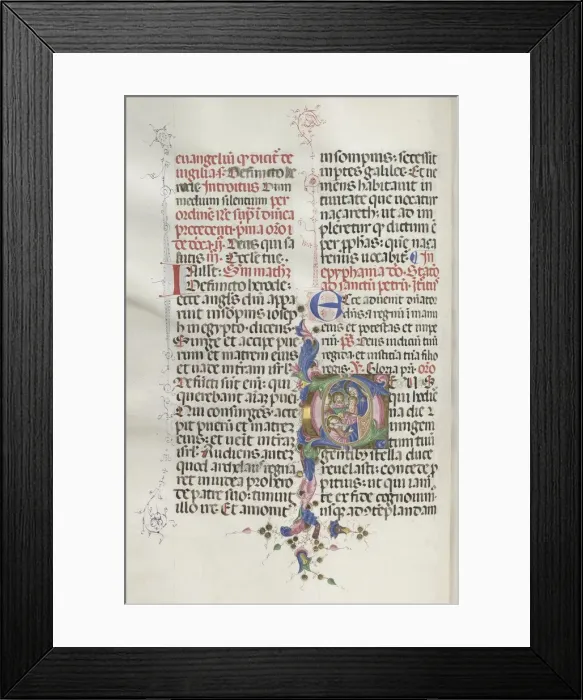 euangeliũ qđ dicit̃ de
uigilia
Defuncto he
rode Introitus Dum
medium silentium per
ordinē
precedenti
Deus qui sa
lutis
In illt̃
Defuncto herode:
ecce angl̃s dñi appa
ruit in sompnis ioseph
in egypto dicens.
Surge et accipe pue
rum et matrem eius
et uade in terram isrl̃.
Defuncti sunt enī qui
querebant aīaz pueri
Qui consurgēs acce
pit puerū et matrem
eius: et uenit in terrā
isrl̃. Audiens autem
quod archelaus regna
ret in iudea pro herode
de patre suo: timuit
illo ire. Et amonit̃
in sompnis: secessit
in ptes galilee. Et ue
niens habitauit in
ciuitate que uocatur
nazareth: ut ad im
pleretur qđ dictum ē
per pphas: qm̃ naza
renus uocabit̃. In
epyphania dñi. Statõ
ad sanctū petrū. Introit̃
Ecce aduenit dñator
dñs et regnū in manu
eius et potestas et impe
riū. ps̃. Deus iudiciū tuū
regi da et iustitiā tuā filio
regis. V. Gloria pr̃i. oro
DEUS
qui hodier
na die u
nigeni
tum tuū
gentibus stella duce
reuelasti: concede p
pitius: ut qui iam
te ex fide cognouim̃
usque ad spēm